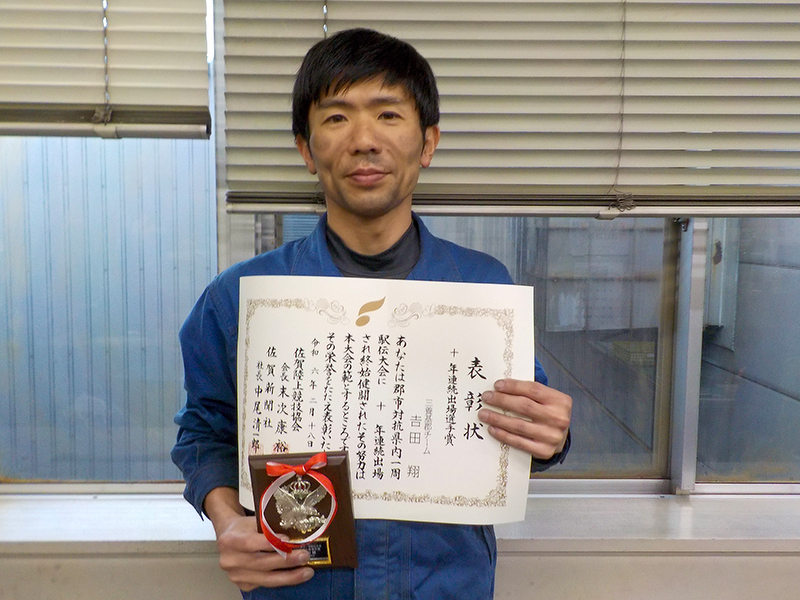 表彰状
十年連続出場選手賞
三養基郡チーム
吉田 翔
あなたは郡市対抗県内一周
駅伝大会に 十 年連続出場
され終始健闘されたその努力は
本大会の範とするところです
その栄誉をたたえ表彰いた
令和 六 年 二 月 十八 日
佐賀陸上競技協会
会長 末次康裕
佐賀新聞社
社長 中尾清一郎